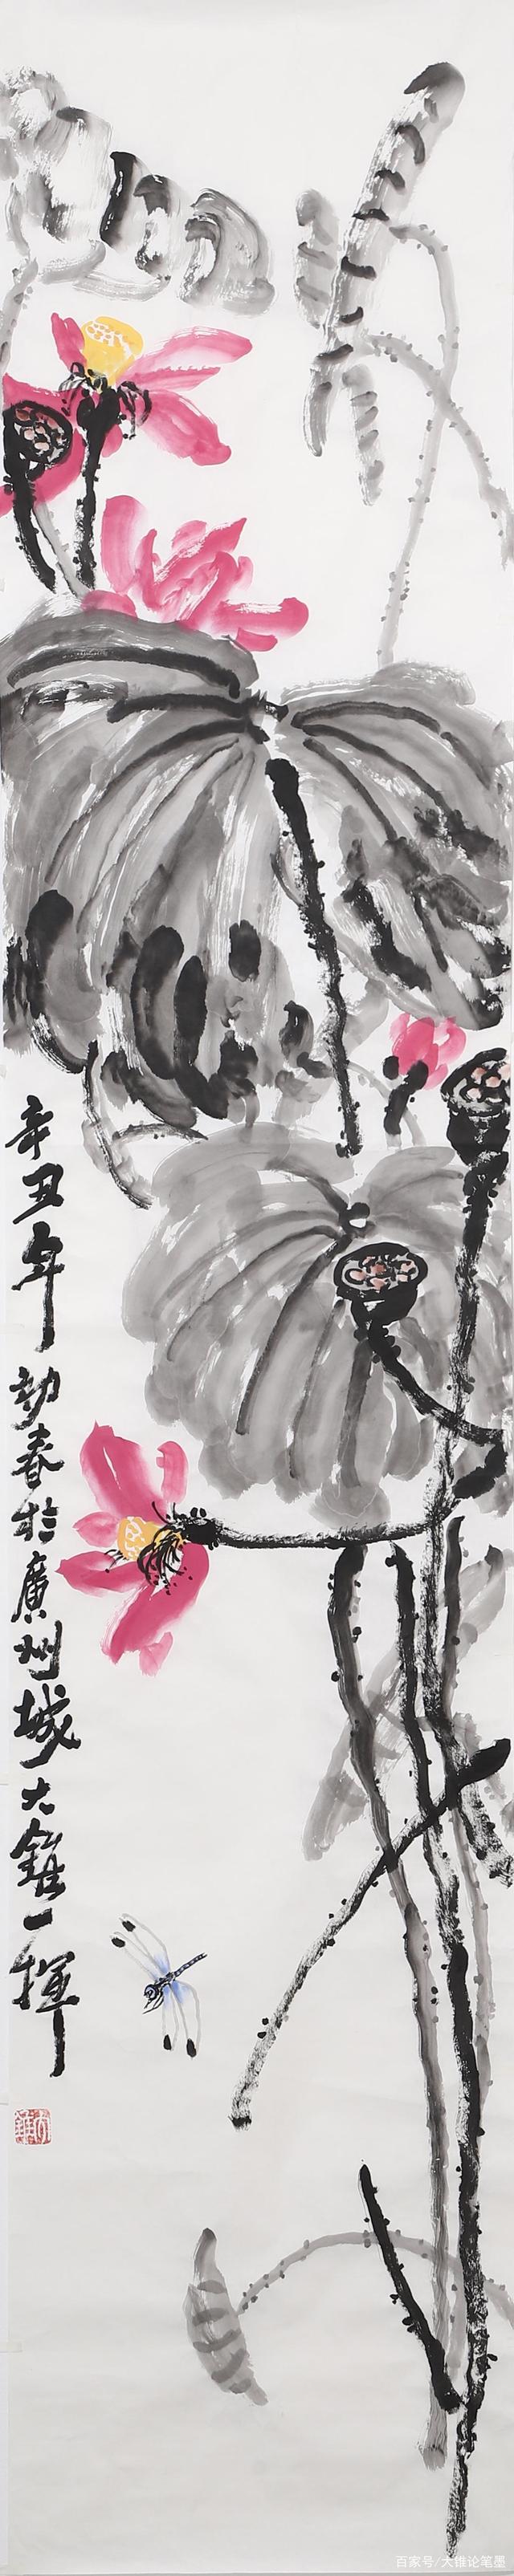 辛丑年初春於廣州城大錐一揮
大錐
百家号/大锥论笔墨